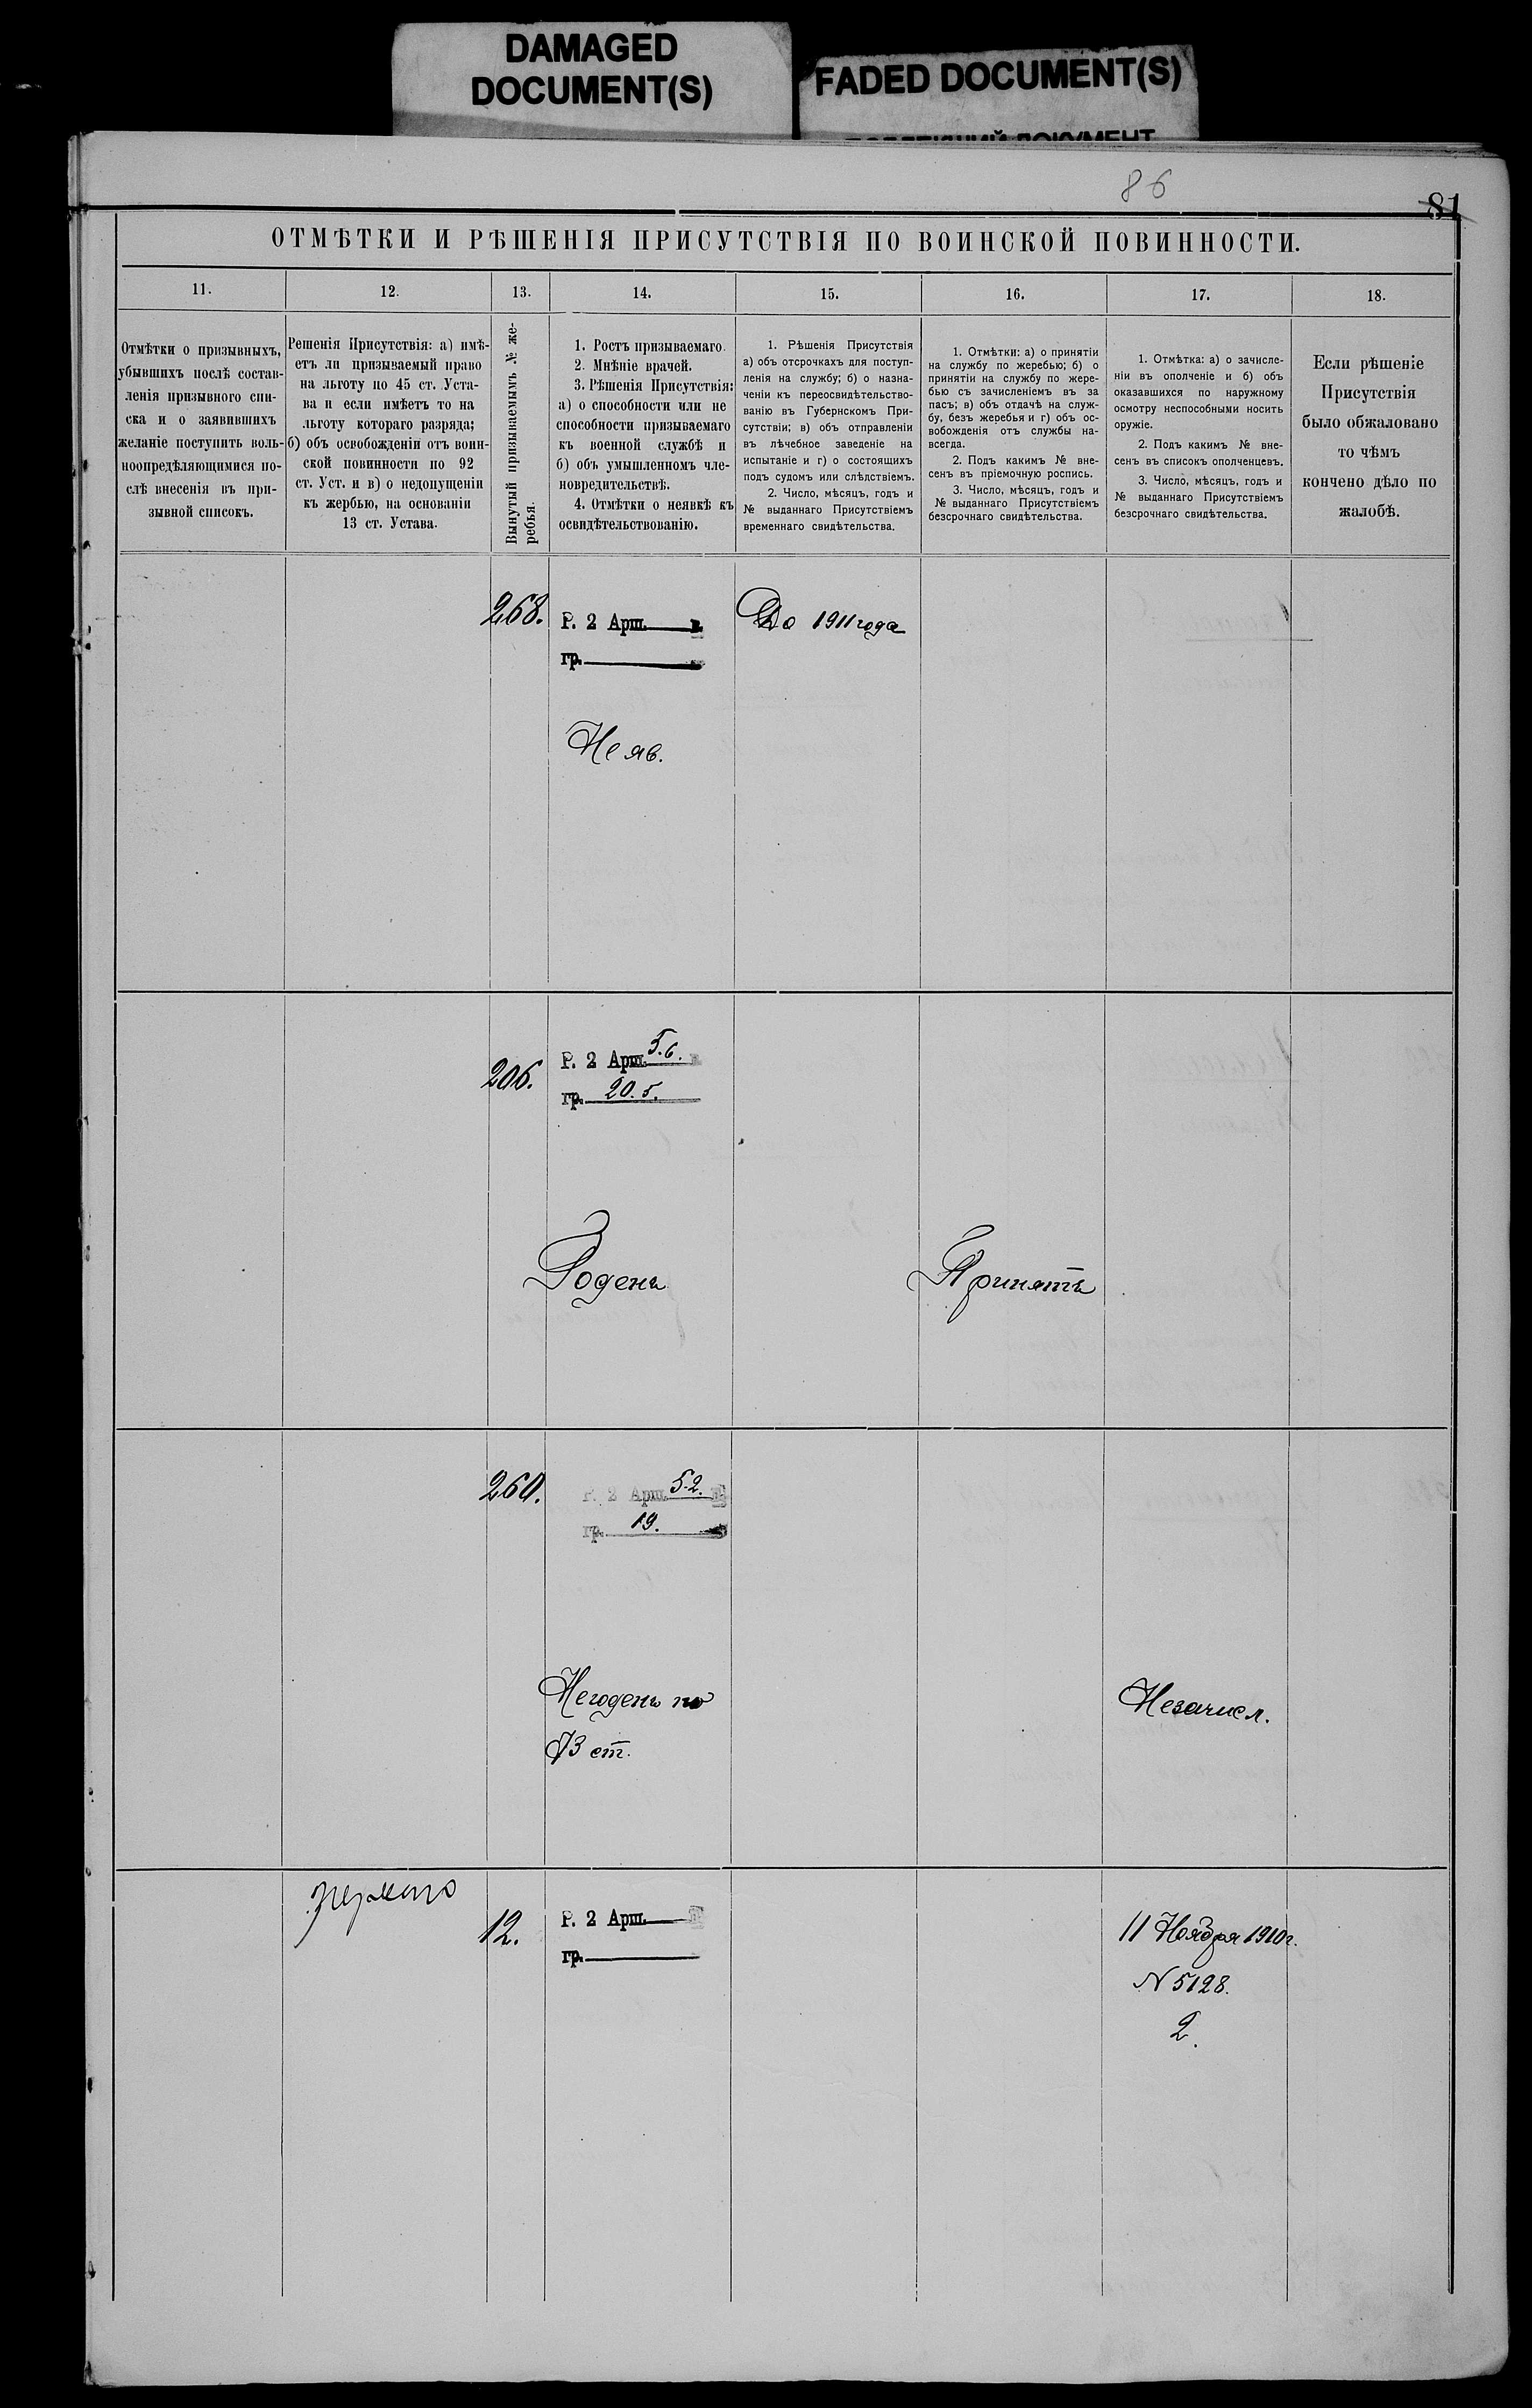 DAMAGED
DOCUMENT(S)
FADED DOCUMENT(S)
86
81
ОТМѢТКИ И РѢШЕНІЯ ПРИСУТСТВІЯ ПО ВОИНСКОЙ ПОВИННОСТИ.
11.
12.
13.
14.
15.
16.
17.
18.
Отмѣтки о призывныхъ,
убывшихъ послѣ состав-
ленія призывного спи-
ска и о заявившихъ
желаніе поступить воль-
ноопредѣляющимися по-
слѣ внесенія въ при-
зывной списокъ.
Решенія Присутствія: а) имѣ-
етъ ли призываемый право
на льготу по 45 ст. Уста-
ва и если имѣетъ то на
льготу котораго разряда;
б) объ освобожденіи отъ воин-
ской повинности по 92
ст. Уст. и в) о недопущеніи
къ жербью, на основаніи
13 ст. Устава.
Вынутый призываемымъ № же-
ребья.
1. Ростъ призываемаго.
2. Мнѣніе врачей.
3. Рѣшенія Присутствія:
а) о способности или не
способности призываемаго
къ военной службѣ и
б) объ умышленномъ чле-
новредительствѣ.
4. Отмѣтки о неявкѣ къ
освидѣтельствованію.
1. Рѣшенія Присутствія
а) объ отсрочкахъ для поступ-
ленія на службу; б) о назна-
ченіи къ переосвидѣтельство-
ванію въ Губернскомъ При-
сутствіи; в) объ отправленіи
въ лѣчебное заведеніе на
испытаніе и г) о состоящихъ
подъ судомъ или слѣдствіемъ.
2. Число, мѣсяцъ, годъ и
№ выданнаго Присутствіемъ
временнаго свидѣтельства.
1. Отмѣтки: а) о принятіи
на службу по жеребью; б) о
принятіи на службу по жере-
бью съ зачисленіемъ въ за
пасъ; в) объ отдачѣ на служ-
бу, безъ жеребья и г) объ ос-
вобожденія отъ службы на-
всегда.
2. Подъ какимъ № вне-
сенъ въ пріемочную роспись.
3. Число, мѣсяцъ, годъ и
№ выданнаго Присутствіемъ
безсрочнаго свидѣтельства.
1. Отмѣтка: а) о зачисле-
ніи въ ополченіе и б) объ
оказавшихся по наружному
осмотру неспособными носить
оружіе.
2. Подъ какимъ № вне-
сенъ въ списокъ ополченцевъ.
3. Число, мѣсяцъ, годъ и
№ выданнаго Присутствіемъ
безсрочнаго свидѣтельства.
Если рѣшеніе
Присутствія
было обжаловано
то чѣмъ
кончено дѣло по
жалобѣ.
268.
Р. 2 Арш. в.
гр.
Неяв.
До 1911 года
206.
Р. 2 Арш. 5.6. в.
гр. 20.5.
Годенъ
Принятъ
260.
Р. 2 Арш. 5.2. в.
гр. 19.
Негоденъ по
73 ст.
Незачисл.
12.
Р. 2 Арш. в
гр.
11 Ноября 1910 г.
N 5128.
2.